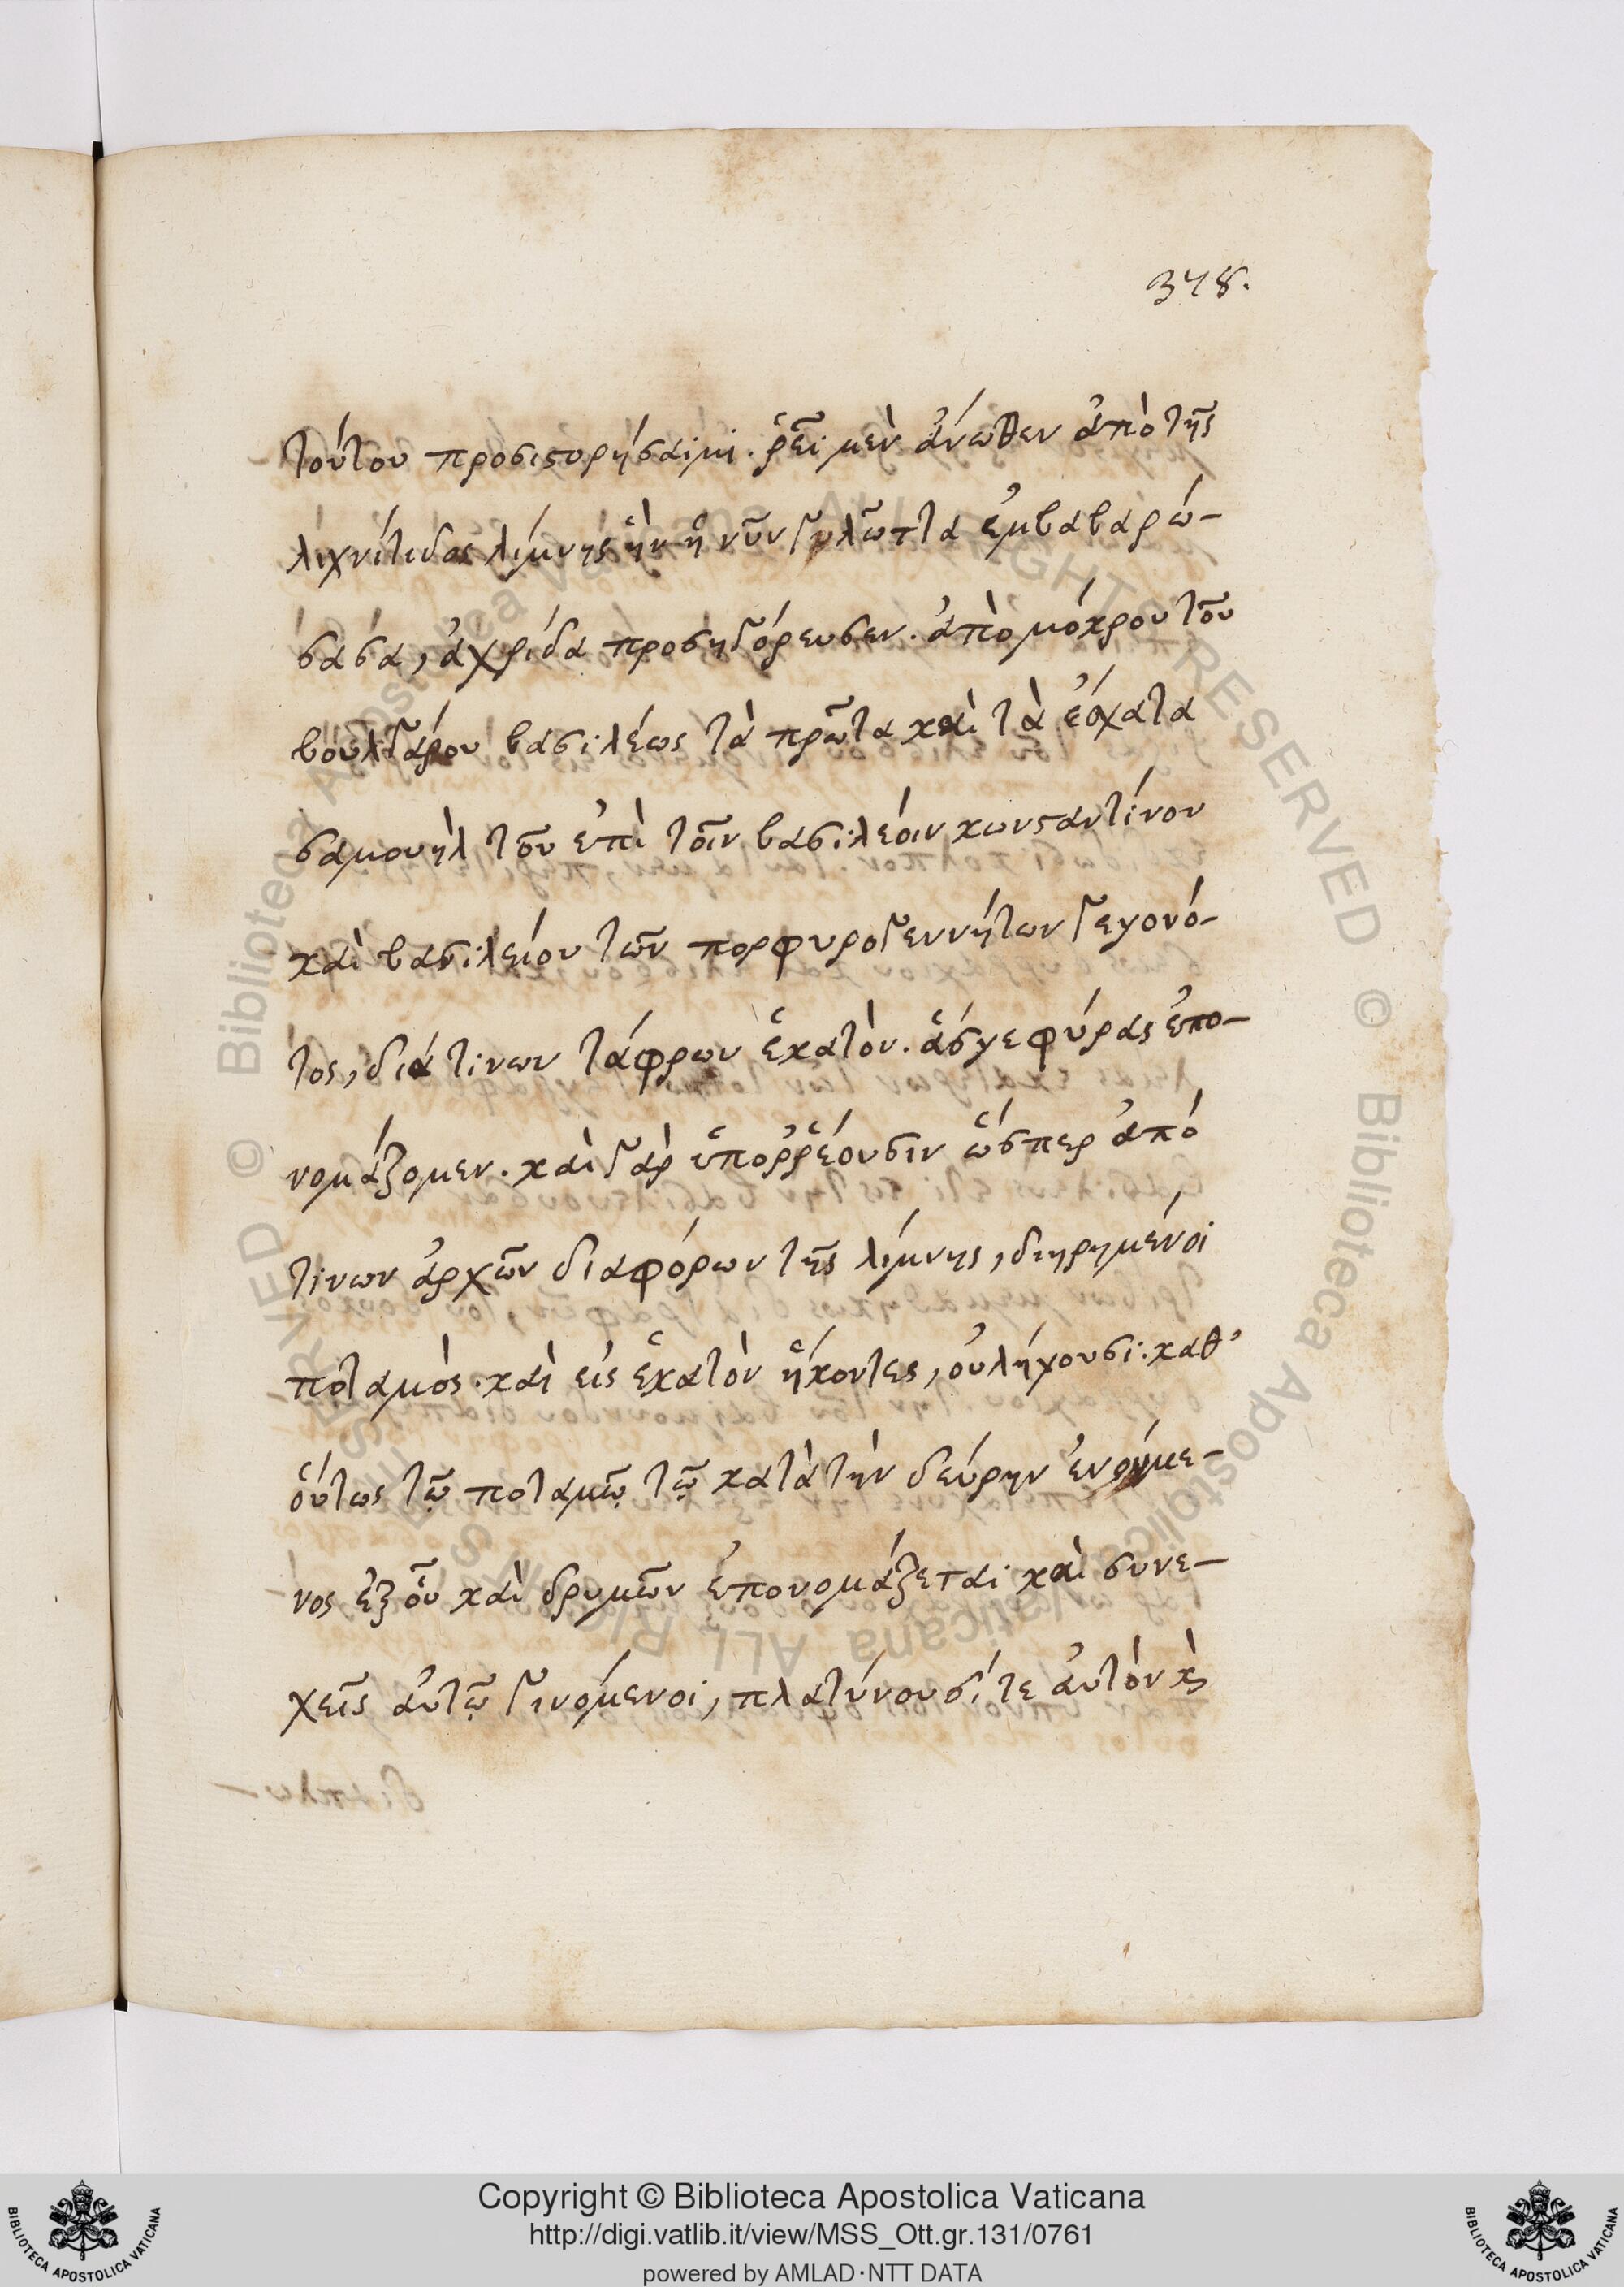 378.
τούτου προσιστορήσαιμι. ῥεῖ μὲν ἄνωθεν ἀπὸ τῆς
λιχνίτιδος λίμνης ἣν ἡ νῦν γλῶττα ἐμβαβαρώ-
σασα, ἀχρίδα προσηγόρευσεν. ἀπὸ μόκρου τοῦ
βουλγάρου βασιλέως τὰ πρῶτα καὶ τὰ ἔσχατα
σαμουὴλ τοῦ ἐπὶ τοῖν βασιλέοιν κωνσταντίνου
καὶ βασιλείου τῶν πορφυρογεννήτων γεγονό-
τος, διά τινων τάφρων ἑκατὸν. ἅς γεφύρας ἐπο-
νομάζομεν. καὶ γὰρ ὑποῤῥέουσιν ὥσπερ ἀπό
τινων ἀρχῶν διαφόρων τῆς λίμνης, διῃρημένοι
ποταμὸς. καὶ εἰς ἑκατὸν ἥκοντες, οὐ λήχουσι: καθ'
οὕτως τῷ ποταμῷ τῷ κατὰ τὴν δεύρην ἑνούμε-
νος ἐξ οὗ καὶ δρυμῶν ἐπονομάζεται καὶ συνε-
χεῖς αὐτῷ γινόμενοι, πλατύνουσί τε αὐτὸν κὶ
Copyright © Biblioteca Apostolica Vaticana
http://digi.vatlib.it/view/MSS_Ott.gr.131/0761
powered by AMLAD·NTT DATA
BIBLIOTECA APOSTOLICA VATICANA
BIBLIOTECA APOSTOLICA VATICANA